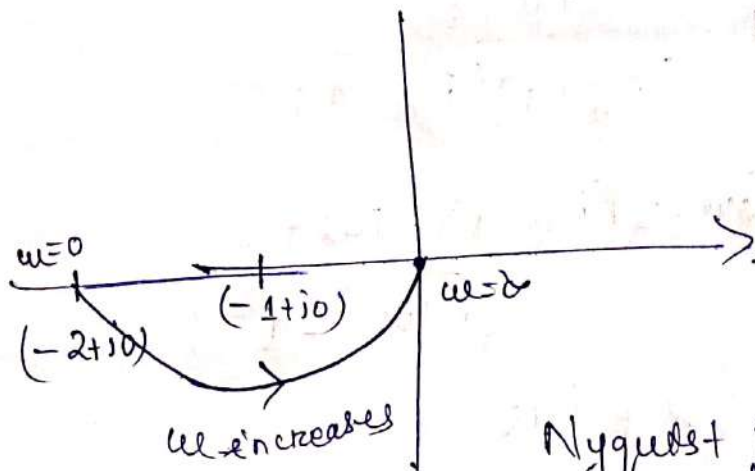 ω=0
(-1+j0)
ω=∞
(-2+j0)
ω increases
Nyquist